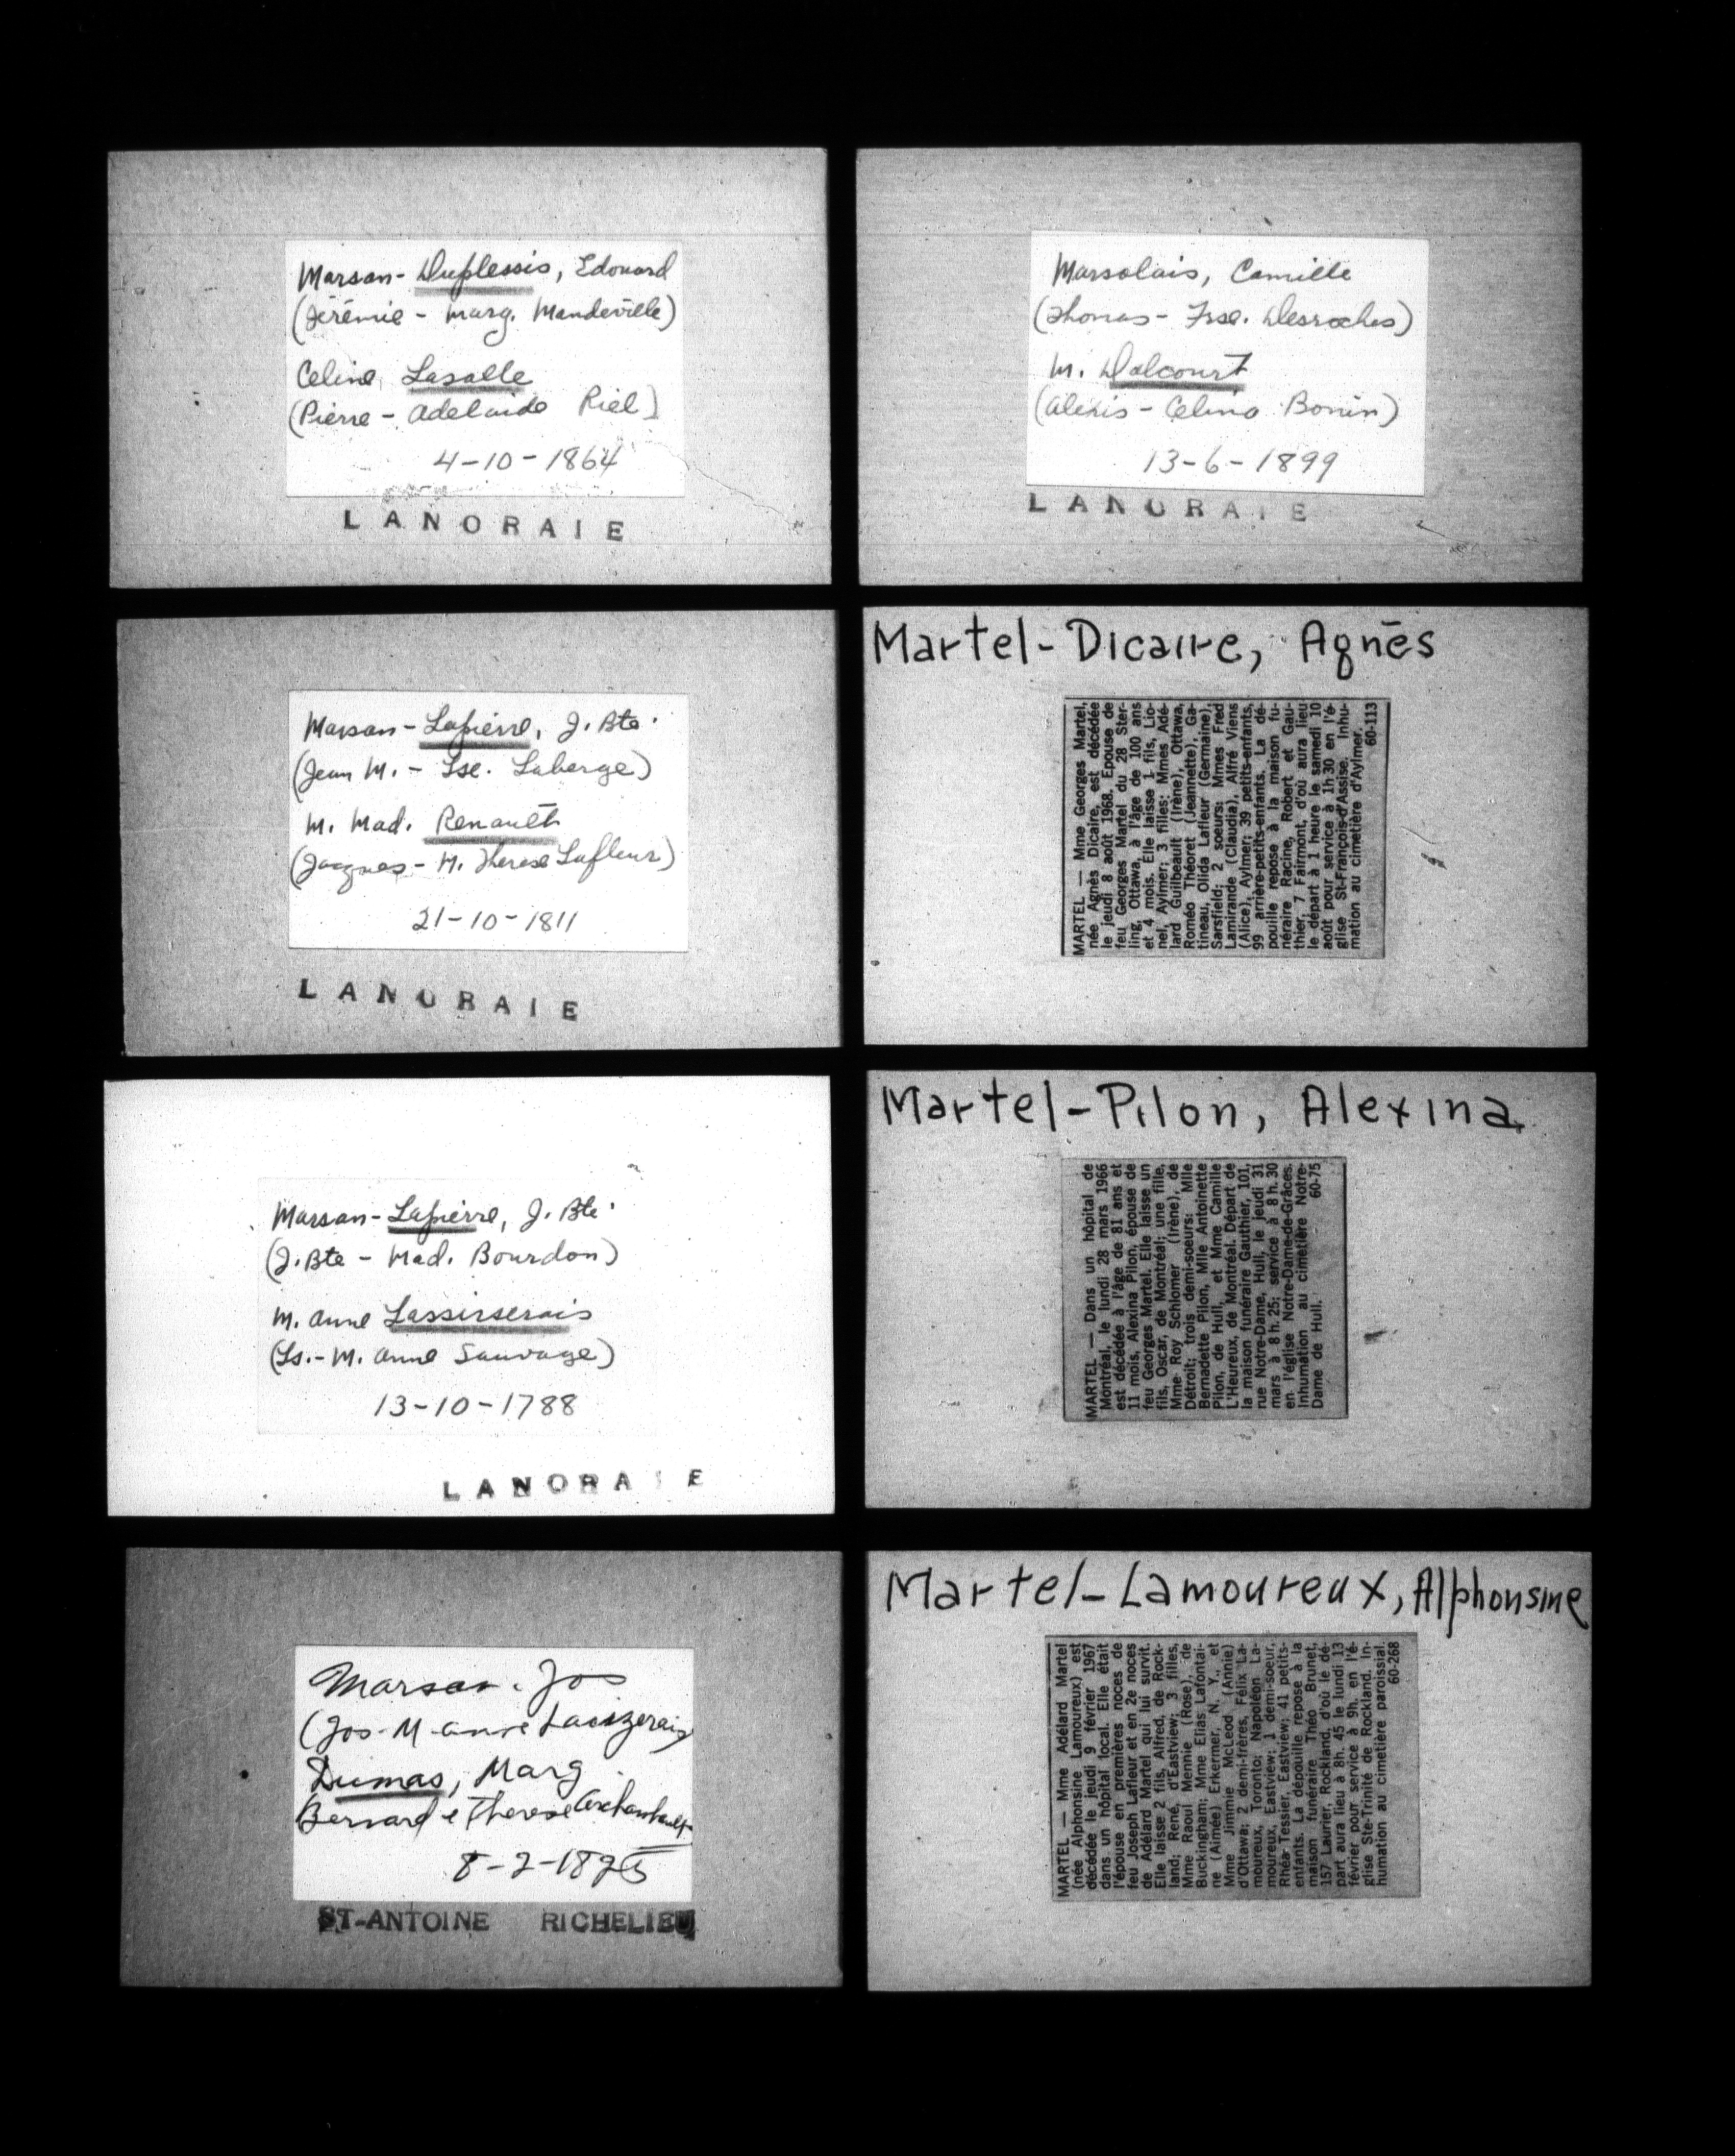 Marsan-Duplessis, Edouard
(Jérémie - Marg. Mandeville)
Celine Lasalle
(Pierre - Adelaide Riel)
4-10-1864
LANORAIE
Marsolais, Camille
(Thomas - Frse. Desroches)
M. Dalcourt
(Alexis - Celina Bonin)
13-6-1899
LANORAIE
Marsan-Lapierre, J. Bte.
(Jean M. - Lse. Laberge)
M. Mad. Renault
(Jacques - M. Therese Lafleur)
21-10-1811
LANORAIE
Martel-Dicaire, Agnès
MARTEL — Mme Georges Martel,
née Agnès Dicaire, est décédée
le jeudi 8 août 1968. Epouse de
feu Georges Martel du 28 Ster-
ling, Ottawa, à l'âge de 100 ans
et 4 mois. Elle laisse 1 fils, Lio-
nel, Aylmer; 3 filles: Mmes Adé-
lard Guilbeault (Irène), Ottawa,
Roméo Théoret (Jeannette), Ga-
tineau, Olida Lafleur (Germaine),
Sarsfield; 2 soeurs: Mmes Fred
Lamirande (Claudia), Alfré Viens
(Alice), Aylmer; 39 petits-enfants,
99 arrière-petits-enfants. La dé-
pouille repose à la maison fu-
néraire Racine, Robert et Gau-
thier, 7 Fairmont, d'où aura lieu
le départ à 1 heure le samedi 10
août pour service à 1h 30 en l'é-
glise St-François-d'Assise. Inhu-
mation au cimetière d'Aylmer.
60-113
Marsan-Lapierre, J. Bte.
(J. Bte - Mad. Bourdon)
M. Anne Lassirserais
(Ls. - M. Anne Sauvage)
13-10-1788
LANORAIE
Martel-Pilon, Alexina
MARTEL — Dans un hôpital de
Montréal, le lundi 28 mars 1966
est décédée à l'âge de 81 ans et
11 mois, Alexina Pilon, épouse de
feu Georges Martel. Elle laisse un
fils, Oscar, de Montréal; une fille,
Mme Roy Schlomer (Irène), de
Détroit; trois demi-soeurs: Mlle
Bernadette Pilon, Mlle Antoinette
Pilon, de Hull, et Mme Camille
L'Heureux, de Montréal. Départ de
la maison funéraire Gauthier, 101,
rue Notre-Dame, Hull, le jeudi 31
mars à 8 h. 25; service à 8 h. 30
en l'église Notre-Dame-de-Grâces.
Inhumation au cimetière Notre-
Dame de Hull. 60-75
Marsan. Jos
(Jos-M anne
Dumas, Marg
Bernard & Therese Archambault
8-2-1825
ST-ANTOINE RICHELIEU
Martel-Lamoureux, Alphonsine
MARTEL — Mme Adélard Martel
(née Alphonsine Lamoureux) est
décédée le jeudi 9 février 1967
dans un hôpital local. Elle était
l'épouse en premières noces de
feu Joseph Lafleur et en 2e noces
de Adélard Martel qui lui survit.
Elle laisse 2 fils, Alfred, de Rock-
land; René, d'Eastview; 3 filles,
Mme Raoul Mennie (Rose), de
Buckingham; Mme Elias Lafontai-
ne (Aimée) Erkermer, N. Y., et
Mme Jimmie McLeod (Annie)
d'Ottawa; 2 demi-frères, Félix La-
moureux, Toronto; Napoléon La-
moureux, Eastview; 1 demi-soeur,
Rhéa Tessier, Eastview; 41 petits-
enfants. La dépouille repose à la
maison funéraire Théo Brunet,
157 Laurier, Rockland, d'où le dé-
part aura lieu à 8h. 45 le lundi 13
février pour service à 9h. en l'é-
glise Ste-Trinité de Rockland. In-
humation au cimetière paroissial.
60-268